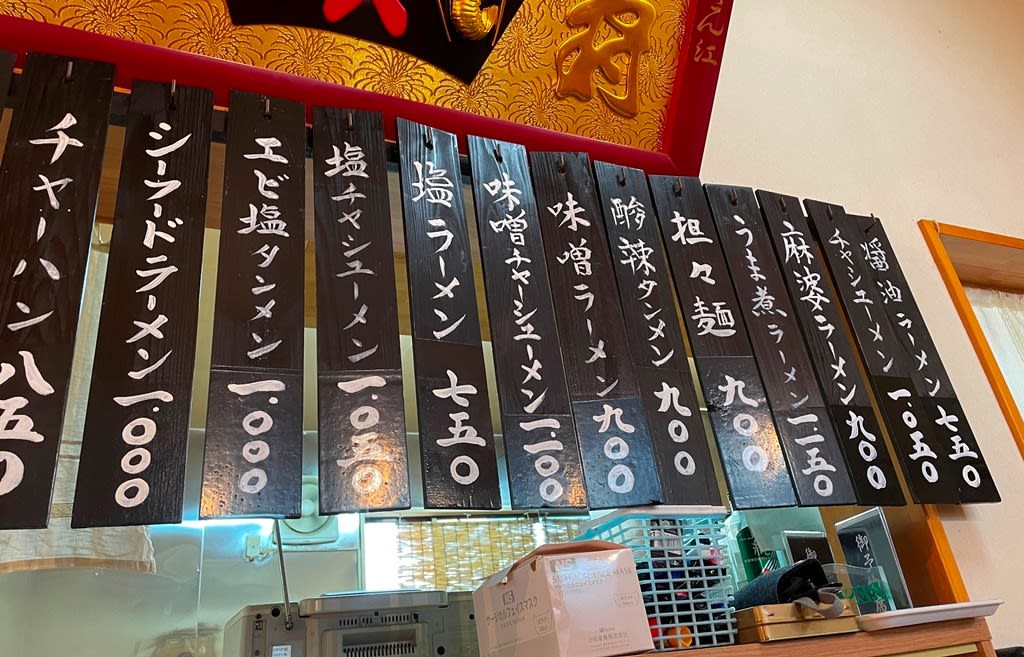 醤油ラーメン 七五〇
チャシューメン 一.〇五〇
麻婆ラーメン 九〇〇
うま煮ラーメン 一.一五〇
担々麺 九〇〇
酸辣タンメン 九〇〇
味噌ラーメン 九〇〇
味噌チャーシューメン 一.一〇〇
塩ラーメン 七五〇
塩チャシューメン 一.〇五〇
エビ塩タンメン 一.〇〇〇
シーフードラーメン 一.〇〇〇
チャーハン 八五〇
サージカルフェイスマスク